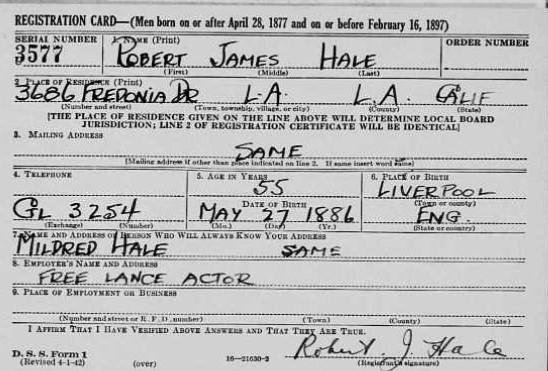 REGISTRATION CARD—(Men born on or after April 28, 1877 and on or before February 16, 1897)
SERIAL NUMBER 1. NAME (Print) ORDER NUMBER
3577 ROBERT JAMES HALE
(First) (Middle) (Last)
2. PLACE OF RESIDENCE (Print)
3686 FREDONIA DR L.A. L.A. CALIF
(Number and street) (Town, township, village, or city) (County) (State)
[THE PLACE OF RESIDENCE GIVEN ON THE LINE ABOVE WILL DETERMINE LOCAL BOARD
JURISDICTION; LINE 2 OF REGISTRATION CERTIFICATE WILL BE IDENTICAL]
3. MAILING ADDRESS
SAME
[Mailing address if other than place indicated on line 2. If same insert word same]
4. TELEPHONE 5. AGE IN YEARS 6. PLACE OF BIRTH
55 LIVERPOOL
DATE OF BIRTH (Town or county)
GL 3254 MAY 27 1886 ENG.
(Exchange) (Number) (Mo.) (Day) (Yr.) (State or country)
7. NAME AND ADDRESS OF PERSON WHO WILL ALWAYS KNOW YOUR ADDRESS
MILDRED HALE SAME
8. EMPLOYER'S NAME AND ADDRESS
FREE LANCE ACTOR
9. PLACE OF EMPLOYMENT OR BUSINESS
(Number and street or R. F. D. number) (Town) (County) (State)
I AFFIRM THAT I HAVE VERIFIED ABOVE ANSWERS AND THAT THEY ARE TRUE.
D. S. S. Form 1
(Revised 4-1-42) (over) 16—21630-2 Robert J. Hale
(Registrant's signature)